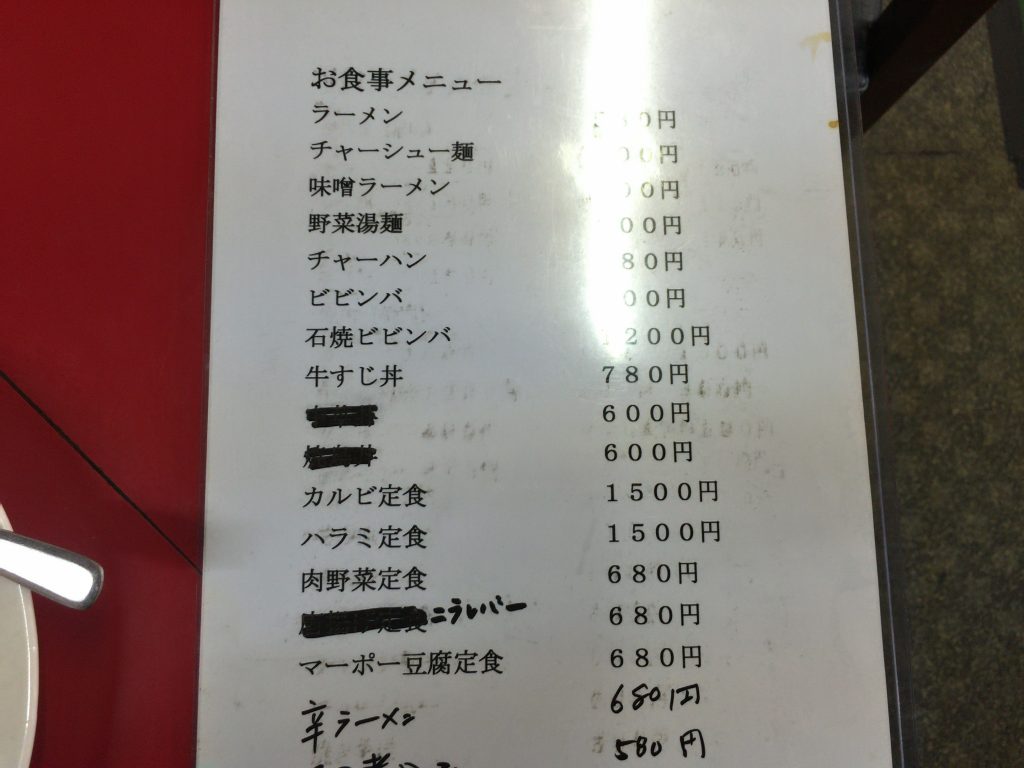 お食事メニュー
ラーメン 0円
チャーシュー麺 00円
味噌ラーメン 00円
野菜湯麺 00円
チャーハン 80円
ビビンバ 00円
石焼ビビンバ 1200円
牛すじ丼 780円
600円
600円
カルビ定食 1500円
ハラミ定食 1500円
肉野菜定食 680円
ニラレバー 680円
マーポー豆腐定食 680円
辛ラーメン 680円
580円